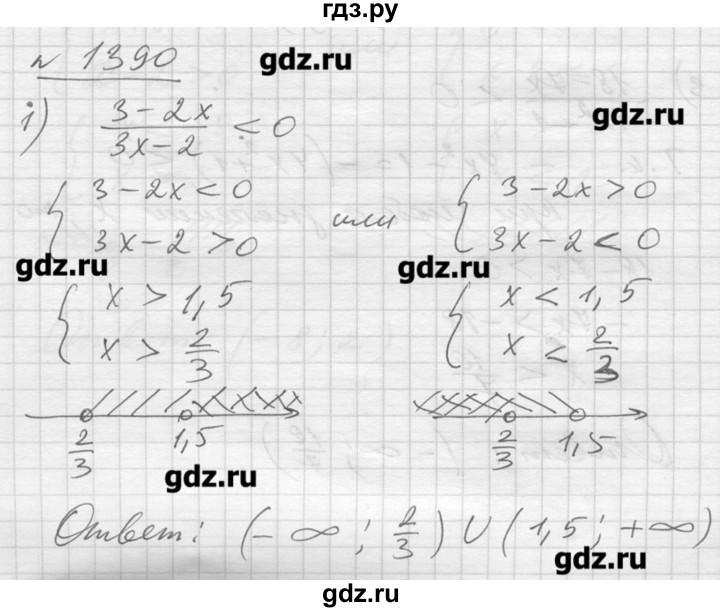 гдз.ру
№ 1390
gdz.ru
1) (3 - 2x)/(3x - 2) < 0
gdz.ru
{ 3 - 2x < 0 или { 3 - 2x > 0
{ 3x - 2 > 0 { 3x - 2 < 0
gdz.ru gdz.ru
{ x > 1,5 { x < 1,5
{ x > 2/3 { x < 2/3
2/3 1,5 2/3 1,5
gdz.ru
Ответ: (- ∞; 2/3) ∪ (1,5; +∞)
gdz.ru
gdz.ru